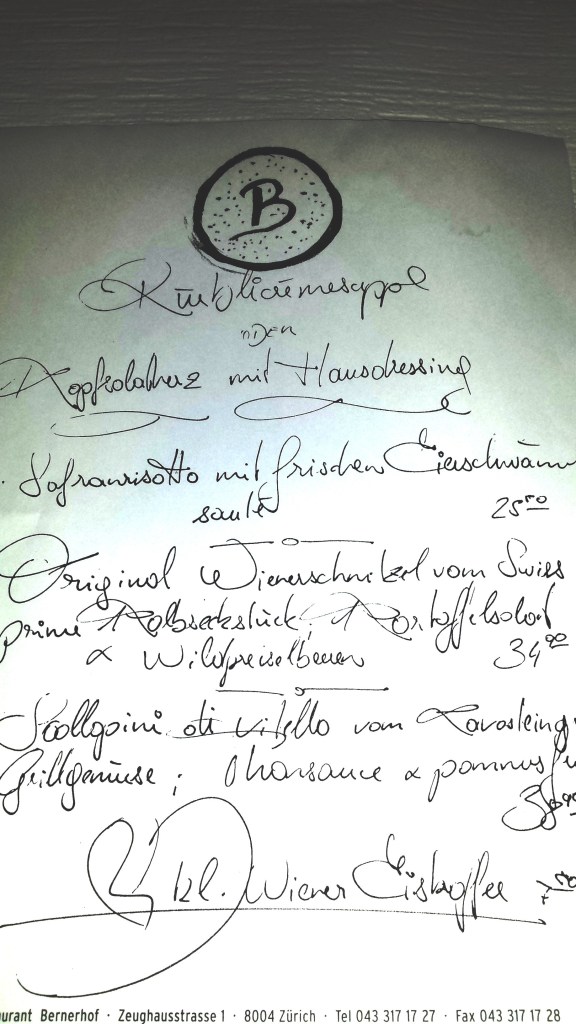 B
Kürbiscremesuppe
oder
Kopfsalatherz mit Hausdressing
Safranrisotto mit frischen Eierschwämm
sauté 25 50
Original Wienerschnitzel vom Swiss
prime Kalbseckstück, Kartoffelsalat
& Wildpreiselbeeren 34 00
Scallopini di vitello vom Lavasteing
Grillgemüse; & pommes
kl. Wiener Eiskaffee 7.50
urant Bernerhof · Zeughausstrasse 1 · 8004 Zürich · Tel 043 317 17 27 · Fax 043 317 17 28